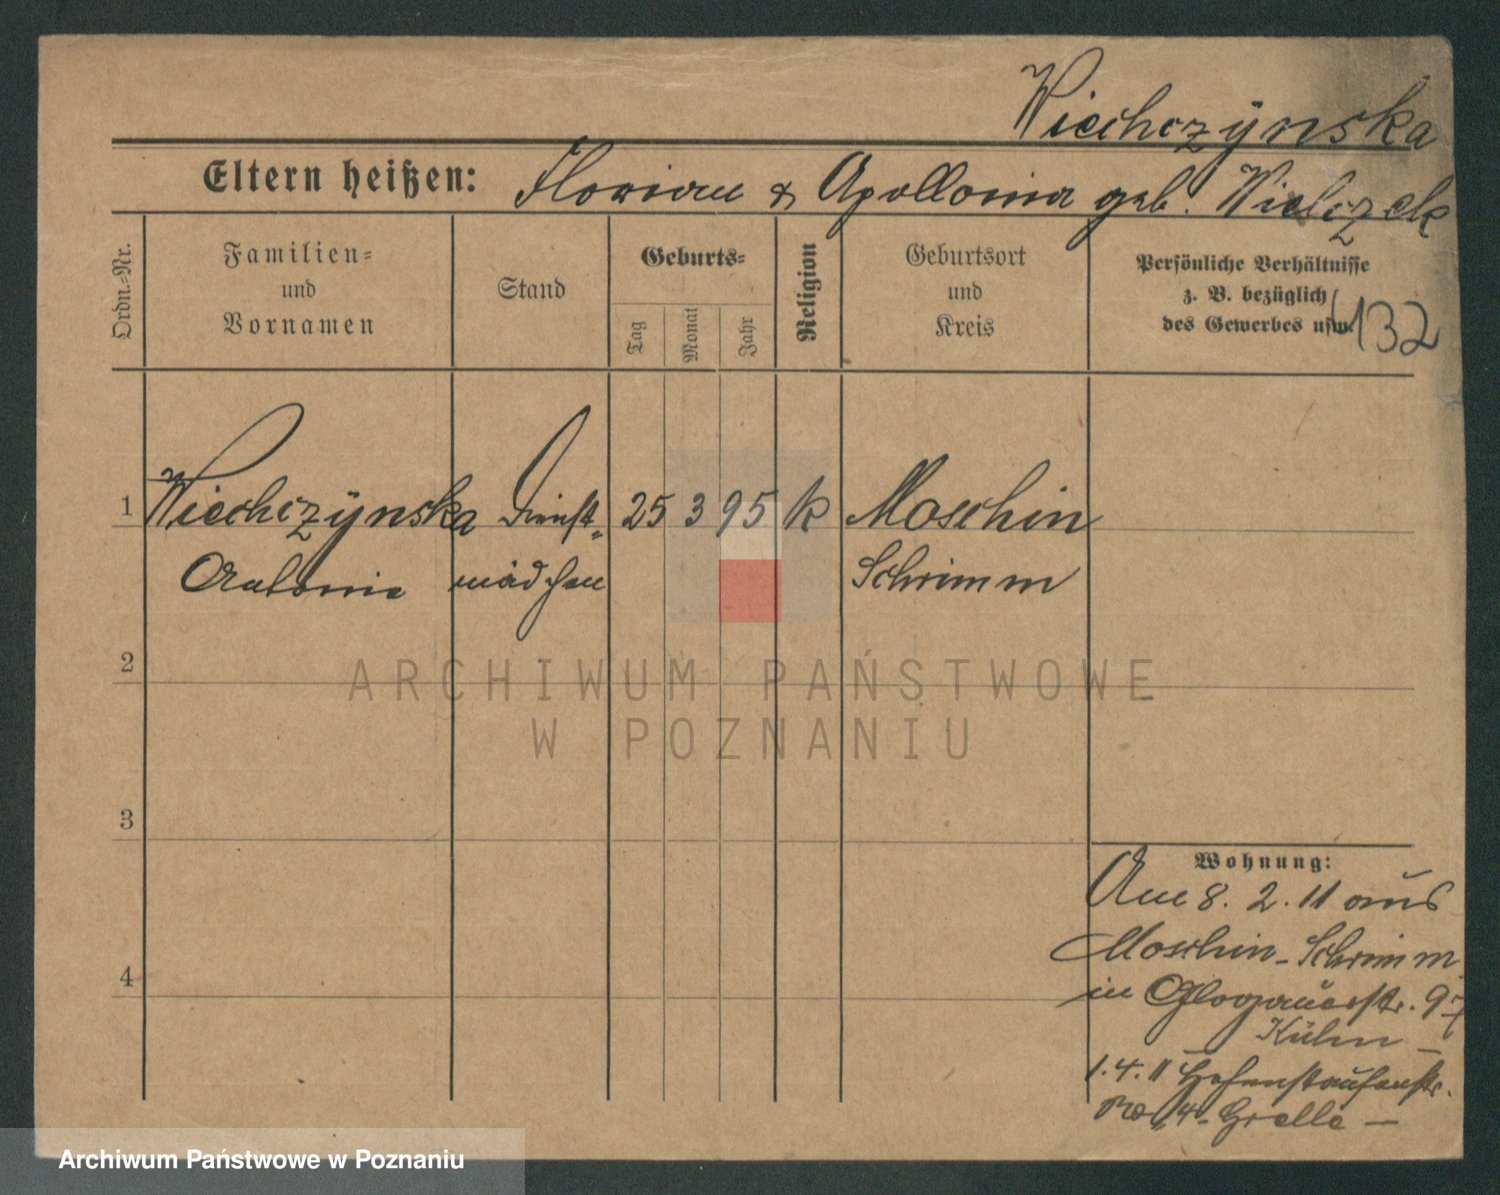 Wiechczÿnska
Eltern heißen: Florian & Apollonia geb. Wielczek
Ordn.-Nr.
Familien-
und
Vornamen
Stand
Geburts-
Tag
Monat
Jahr
Religion
Geburtsort
und
Kreis
Persönliche Verhältnisse
z. B. bezüglich
des Gewerbes usw.
132
1 Wiechczÿnska Dienst- 25 3 95 k Moschin
Antonie mädchen Schrimm
2
ARCHIWUM PAŃSTWOWE
W POZNANIU
3
4
Wohnung:
Am 8. 2. 11 aus
Moschin - Schrimm
in Glogauerstr. 97
Kühn -
1. 4. 11 Hohenstaufenstr.
14 - Grelle -
Archiwum Państwowe w Poznaniu